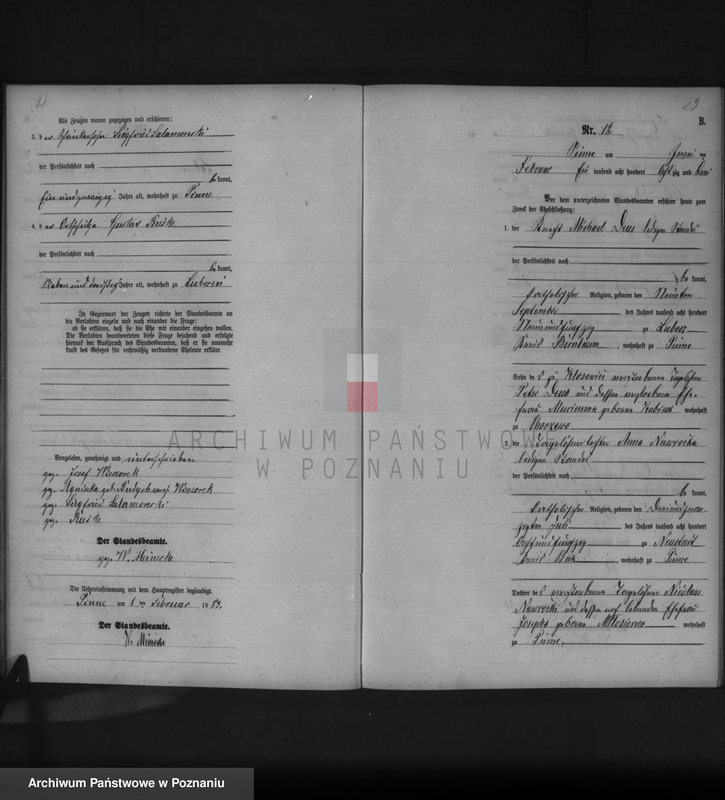 Als Zeugen waren zugezogen und erschienen:
3. der Siegfried Salamonski
der Persönlichkeit nach
be kannt,
Einundzwanzig Jahre alt, wohnhaft zu Pinne
4. der Gustav Riesk
der Persönlichkeit nach
be kannt,
Sieben und dreißig Jahre alt, wohnhaft zu
In Gegenwart der Zeugen richtete der Standesbeamte an
die Verlobten einzeln und nach einander die Frage:
ob sie erklären, daß sie die Ehe mit einander eingehen wollen.
Die Verlobten beantworteten diese Frage bejahend und erfolgte
hierauf der Ausspruch des Standesbeamten, daß er sie nunmehr
kraft des Gesetzes für rechtmäßig verbundene Eheleute erkläre.
Vorgelesen, genehmigt und unterschrieben
gez. Josef
gez. Agnieszka geb.
gez. Siegfried Salamonski
gez.
Der Standesbeamte.
gez. W. Meinecke
Die Uebereinstimmung mit dem Hauptregister beglaubigt.
Pinne am 1 ten Februar 1883.
Der Standesbeamte.
W. Meinecke
13
B.
Nr. 12
Pinne am Zwei ten
Februar Ein tausend acht hundert acht zig und drei
Vor dem unterzeichneten Standesbeamten erschienen heute zum
Zwecke der Eheschließung:
1. der Knecht Michael Deus ledigen Standes
der Persönlichkeit nach
be kannt,
katholischer Religion, geboren den Neunten
September des Jahres tausend acht hundert
Neunundfünfzig zu Lubosz
Kreis Birnbaum, wohnhaft zu Pinne
Sohn des zu verstorbenen Tagelöhner
Peter Deus und dessen verstorbenen Ehe-
frau Marianna geborne Kubiak wohnhaft
zu Chorzewo
2. die Tagelöhnertochter Anna Nawrocka
ledigen Standes
be kannt,
katholischer Religion, geboren den
Juli des Jahres tausend acht hundert
Achtundfünfzig zu Neustadt
Kreis Buk, wohnhaft zu Pinne
Tochter des verstorbenen Tagelöhner Nicolaus
Nawrocki und dessen noch lebenden Ehefrau
Josepha geborne wohnhaft
zu Pinne.
ARCHIWUM PAŃSTWOWE
W POZNANIU
Archiwum Państwowe w Poznaniu